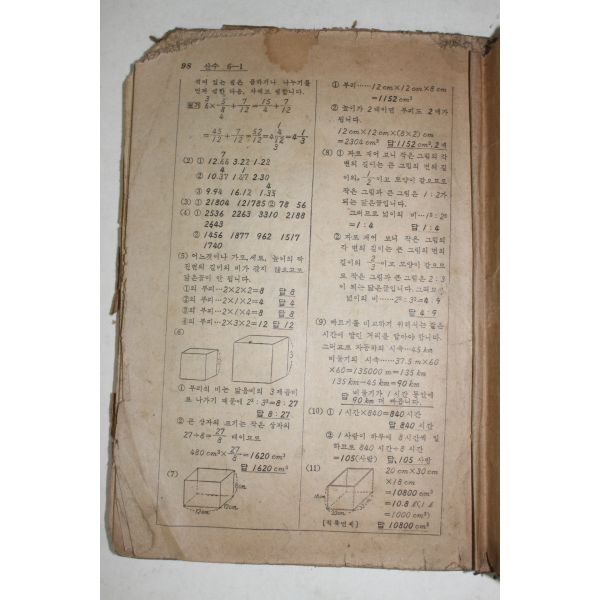 98 산수 6—1
섞여 있는 셈은 곱하거나 나누기를
먼저 셈한 다음, 차례로 셈합니다.
= 45/12 + 7/12 = 52/12 = 4 4/12 = 4 1/3
(2) ① 12.66 3.22 1.22
② 10.37 1.47 2.30
③ 9.94 16.12 1.35
(3) ① 21804 121785 ② 78 56
(4) ① 2536 2263 3310 2188
2643
② 1456 1877 962 1517
1740
(5) 어느것이나 가로, 세로, 높이의 각
진변의 길이의 비가 같지 않으므로
닮은꼴이 안 됩니다.
①의 부피…2×2×2=8 답 8
②의 부피…2×2×1=4 답 4
③의 부피…2×1×4=8 답 8
④의 부피…2×3×2=12 답 12
(6)
① 부피의 비는 닮음비의 3제곱비
로 나가기 때문에 2³ : 3³=8 : 27
답 8 : 27
② 큰 상자의 크기는 작은 상자의
27÷8=27/8 배이므로
480 cm³×27/8=1620 cm³
답 1620 cm³
(7)
8cm
12cm
12cm
① 부피……12 cm×12 cm×8 cm
=1152 cm³
② 높이가 2배이면 부피도 2배가
됩니다.
12 cm×12 cm×(8×2) cm
=2304 cm³ 답 1152 cm³, 2배
(8) ① 자로 재어 보니 작은 그림의 각
변의 길이는 큰 그림의 변의 길
이의, 1/2 이고 모양이 같으므로
작은 그림과 큰 그림은 1 : 2가
되는 닮은꼴입니다.
그러므로 넓이의 비…1² : 2²
=1 : 4 답 1 : 4
② 자로 재어 보니 작은 그림의
각 변의 길이는 큰 그림의 변의
길이의 2/3 이고 모양이 같으므
로 작은 그림과 큰 그림은 2 : 3
이 되는 닮은꼴입니다. 그러므로
넓이의 비……2² : 3²=4 : 9
답 4 : 9
(9) 빠르기를 비교하기 위하서는 같은
시간에 달린 거리를 알아야 합니다.
그러므로 자동차의 시속…45 km
비둘기의 시속……37.5 m×60
×60=135000 m=135 km
135 km−45 km=90 km
답 비둘기가 1시간 동안에
90 km 더 빠릅니다.
(10) ① 1시간×840=840시간
답 840시간
② 1사람이 하루에 8시간씩 일
하므로 840시간÷8시간
=105(사람) 답 105 사람
(11)
20 cm×30 cm
×18 cm
=10800 cm³
=10.8 l (1 l
=1000 cm³)
답 10800 cm³